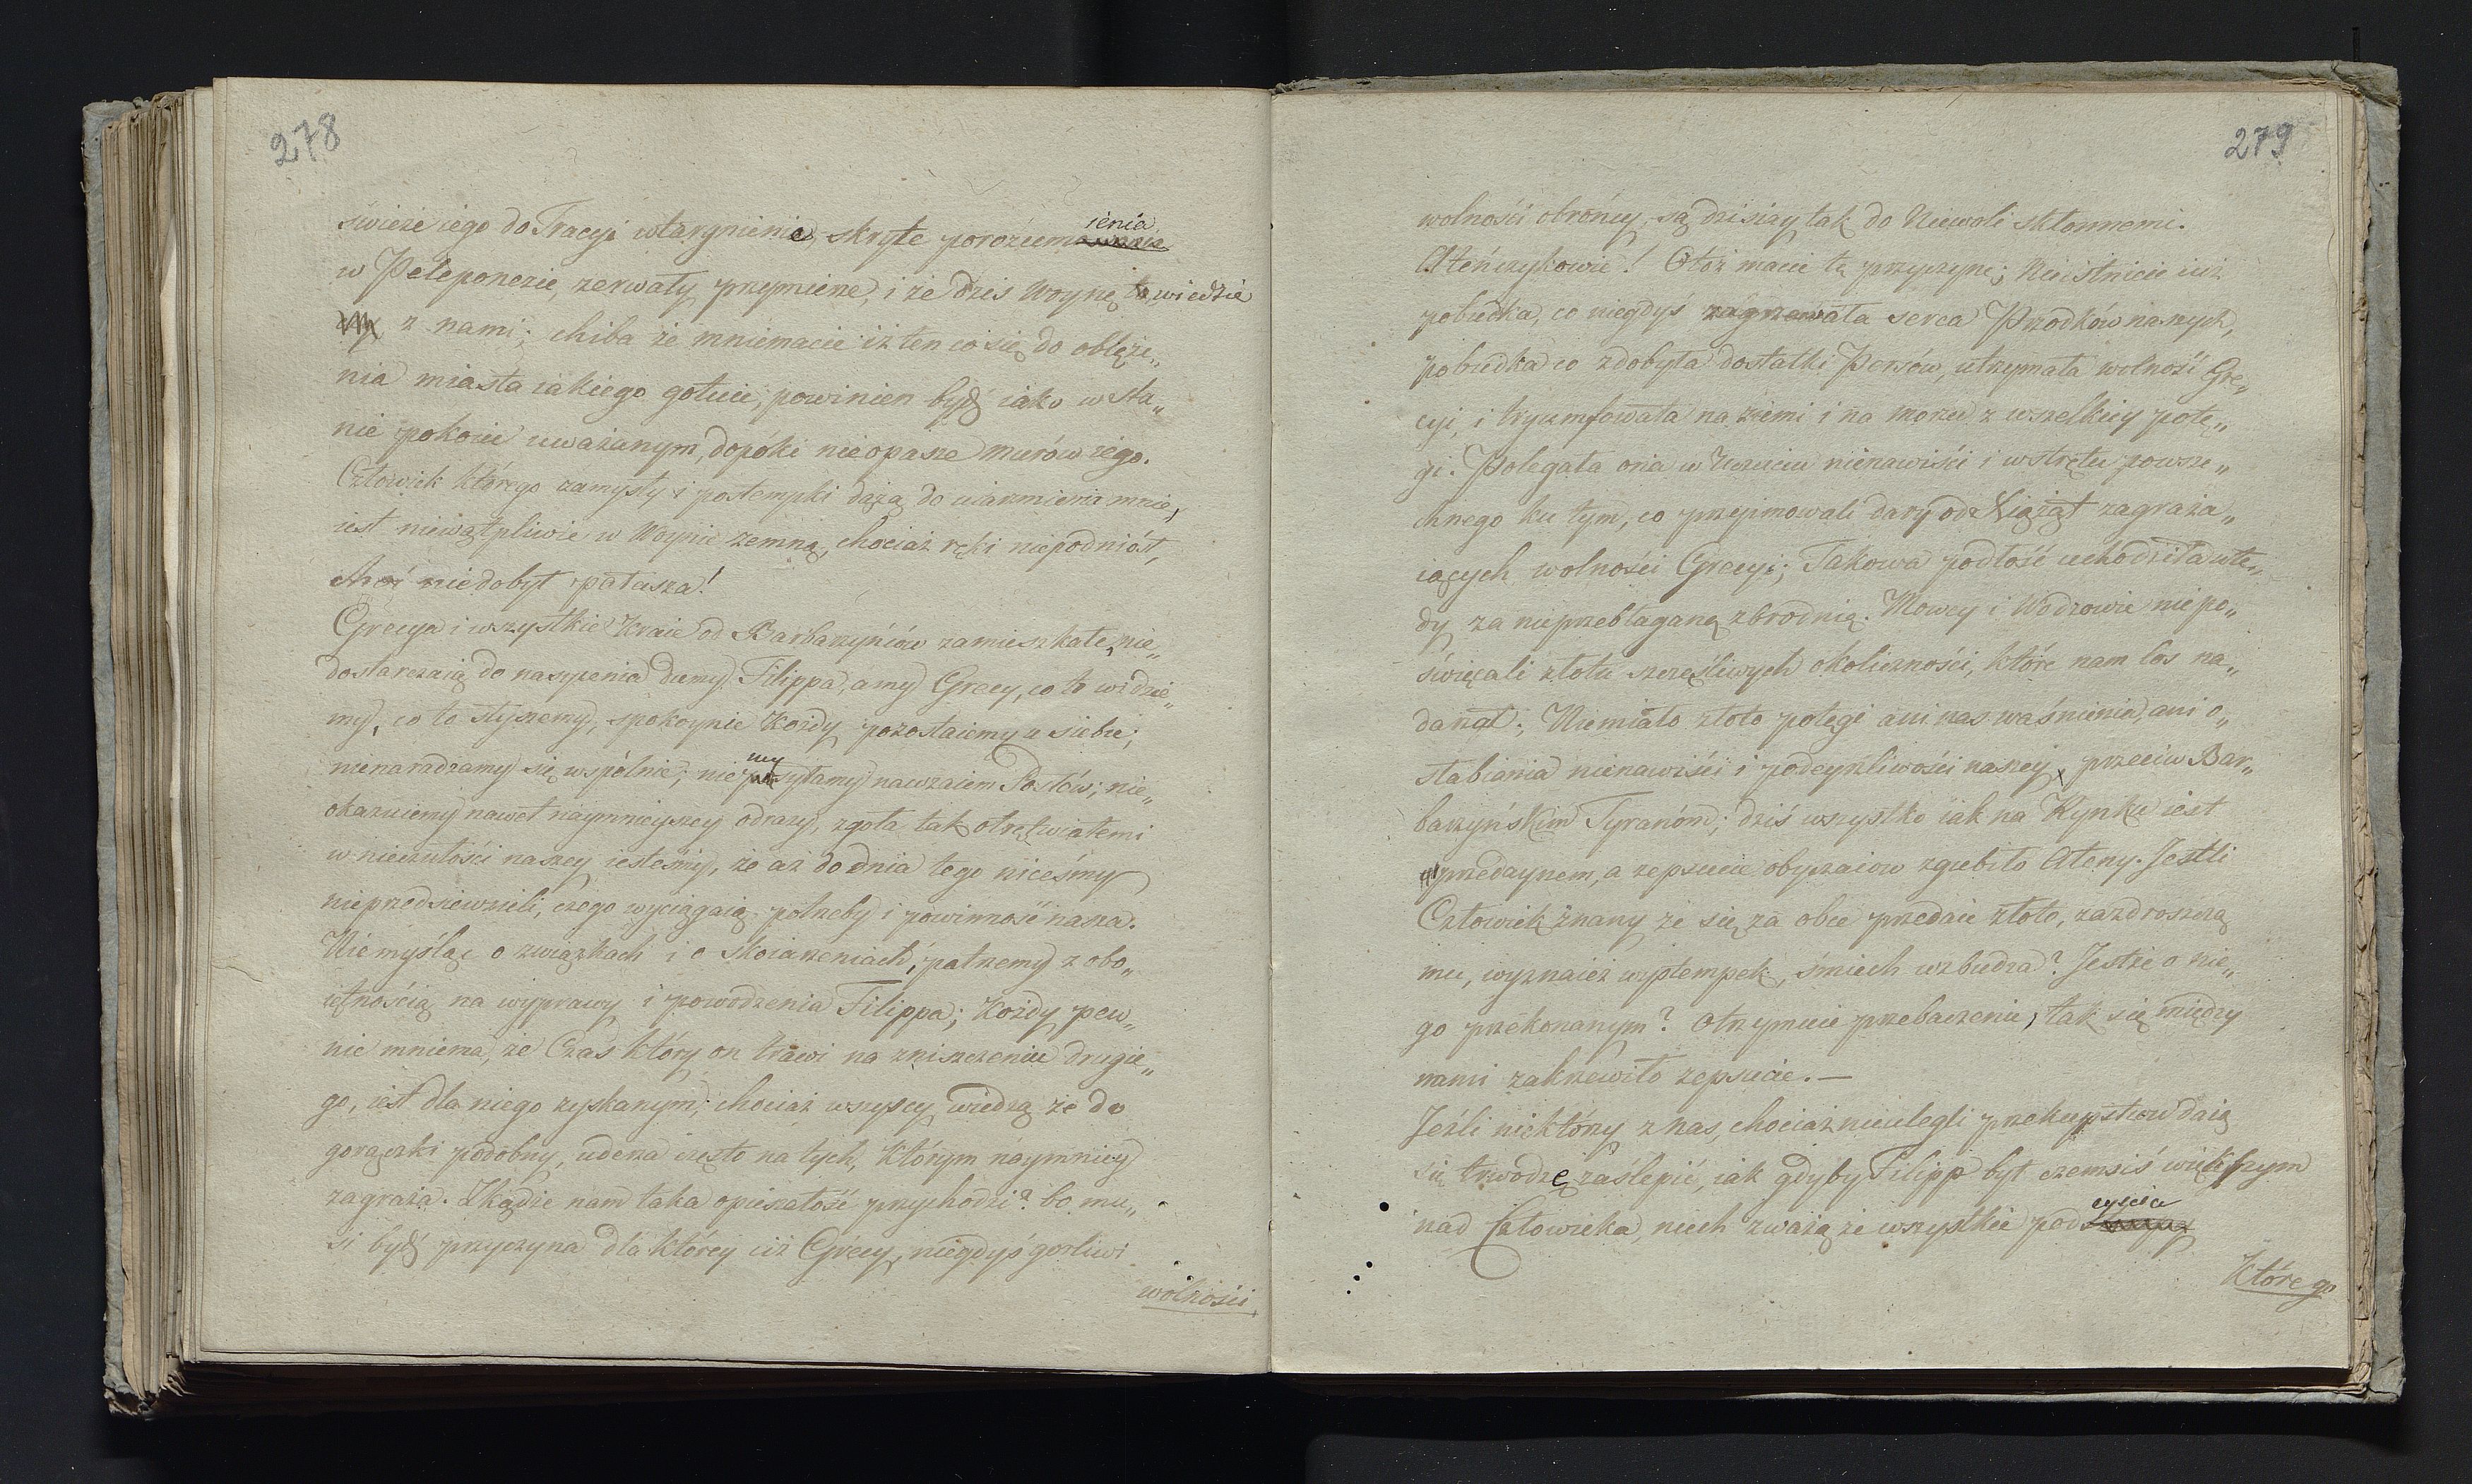 278
świeże iego do Tracyi wtargnienie, skryte porozumienia
w Peleponezie, zerwały przymierze, i że dziś Woynę wiedzie
z nami; chiba że mniemacie iż ten co się do oblęże„
nia miasta iakiego gotuie, powinien bydź iako w sta„
nie pokoiu uważanym, dopóki nie opasze murów iego.
Człowiek którego zamysły i postempki dążą do uiarzmienia mnie,
iest niewątpliwie w Woynie zemną, chociaż ręki niepodniósł,
choć niedobył pałasza!
Grecya i wszystkie Kraie od Barbarzyńców zamieszkałe, nie„
dostarczaią do nasycenia dumy Filippa, a my Grecy, co to widzie„
my, co to słyszemy, spokoynie Każdy pozostaiemy u siebie;
nienaradzamy się wspólnie; nie wysyłamy nawzaiem Posłów; nie„
okazuiemy nawet naymnieyszey odrazy, zgoła tak otrętwiałemi
w nieczułości naszey iesteśmy, że aż do dnia tego niceśmy
nieprzedsiewzieli, czego wyciągaią potrzeby i powinność nasza.
Niemyśląc o związkach i o skoiarzeniach, patrzemy z obo„
iętnością na wyprawy i powodzenia Filippa; Każdy pew„
nie mniema, że Czas który on trawi na zniszczeniu drugie„
go, iest dla niego zyskanym; chociaż wszyscy wiedzą że do
gorączki podobny, uderza często na tych, którym naymniey
zagraża. Zkądże nam taka opieszałość przychodzi? bo mu„
si bydź przyczyna dla którey iuż Grecy, niegdyś gorliwi
wolności
279
wolności obrońcy, są dzisiay tak do Niewoli skłonnemi.
Ateńczykowie! Otóż macie tę przyczynę; Nieistnieie iuż
pobudka, co niegdyś zagrzewała serca Przodków naszych,
pobudka co zdobyła dostatki Persów, utrzymała wolność Gre„
cyi, i tryumfowała na ziemi i na morzu z wszelkiey potę„
gi. Polegała ona w Uczuciu nienawiści i wstrętu powsze„
chnego ku tym, co przyimowali dary od Xiążąt zagraża„
iących wolności Grecyi; Takowa podłość uchodziła wte„
dy za nieprzebłaganą zbrodnię. Mowcy i Wodzowie niepo„
święcali złotu szczęśliwych okoliczności, które nam los na„
darzał; Niemiało złoto potęgi ani nas waśnienia, ani o„
słabiania nienawiści i podeyrzliwości naszey, przeciw Bar„
barzyńskim Tyranóm; dziś wszystko iak na Rynku iest
przedaynem, a zepsucie obyczaiow zgubiło Ateny. Jestli
Człowiek znany że się za obce przedaie złoto, zazdroszczą
mu, wyznaież wystempek, śmiech wzbudza? Jestże o nie„
go przekonanym? otrzymuie przebaczenie, tak się między
nami zakrzewiło zepsucie.—
Jeźli niektórzy z nas, chociaż nieulegli przekupstwu daią
się trwodze zaślepić, iak gdyby Filipp był czemsiś większym
nad Człowieka, niech zważą że wszystkie podeyścia
Którego